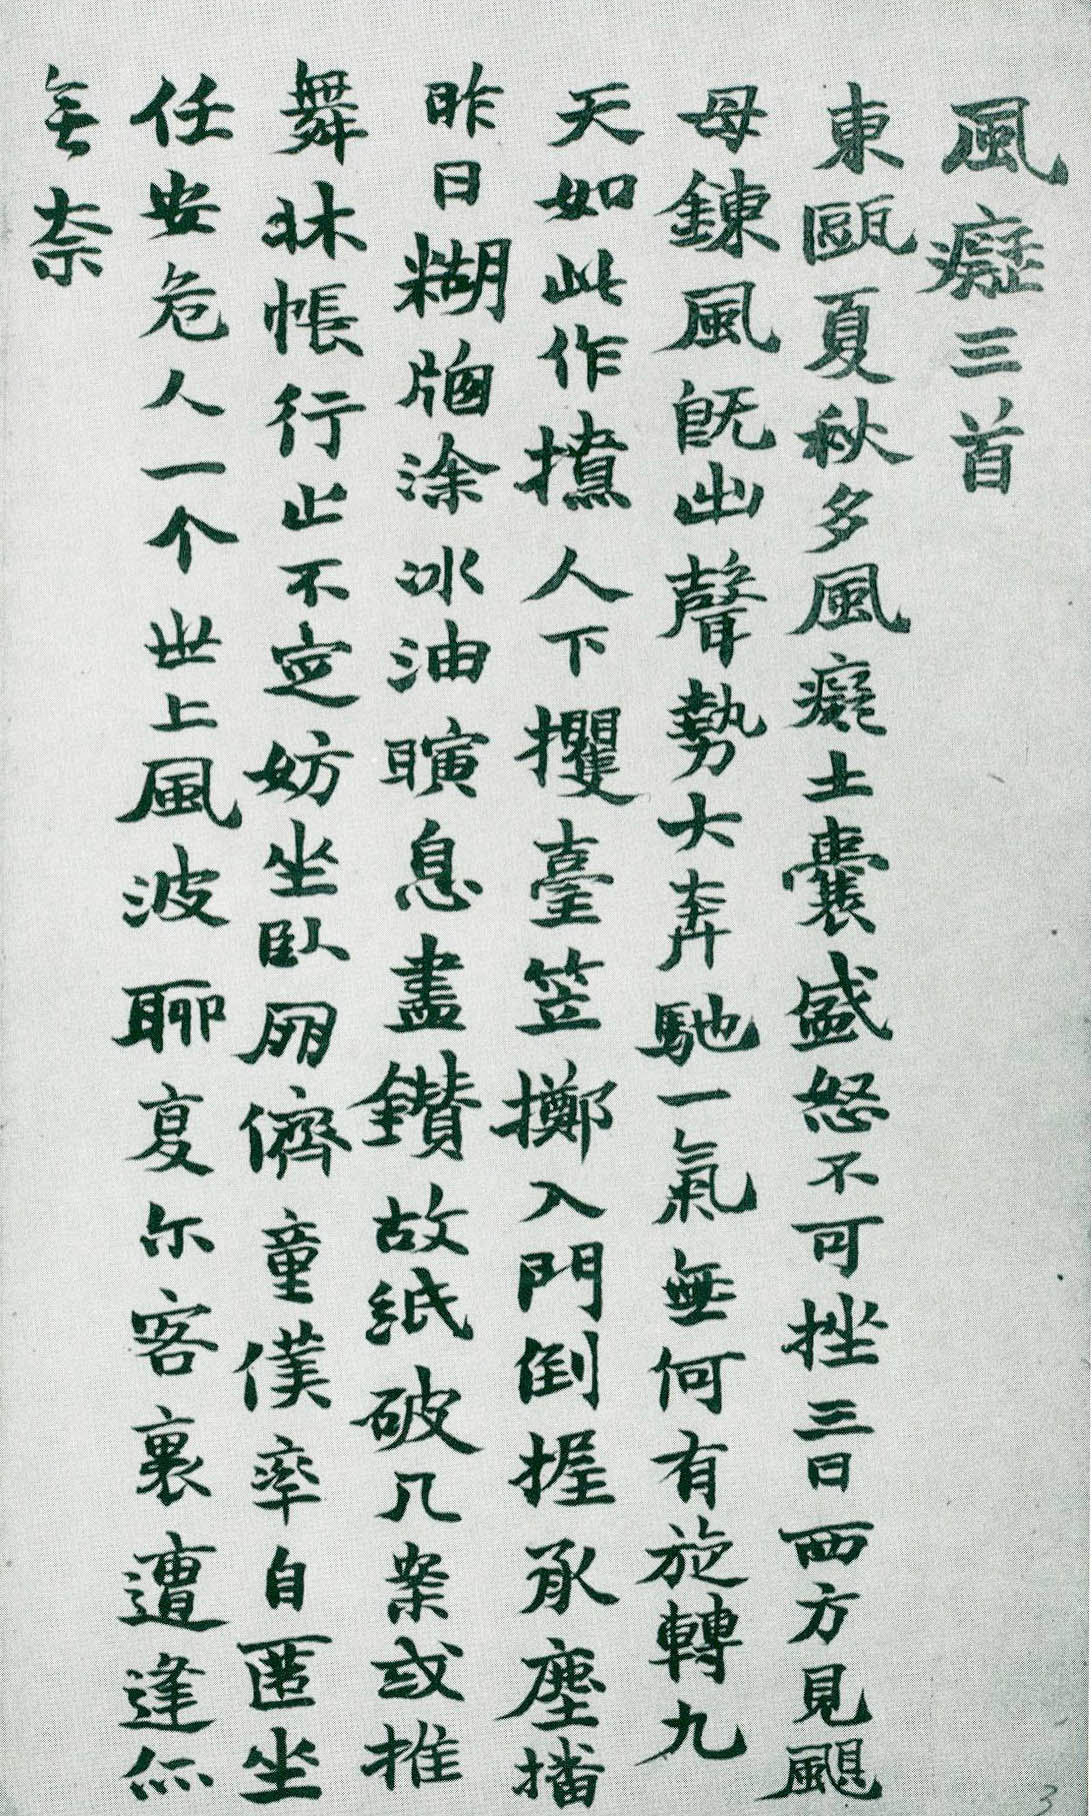 風癡三首
東甌夏秋多風癡土囊盛怒不可挫三日西方見颶
母鍊風既出聲勢大奔馳一氣無何有旋轉九
天如此作撩人下攫臺笠擲入門倒握承塵播
昨日糊牕涂冰油瞚息盡鑽故紙破几案或推
舞牀帳行止不定妨坐臥朋儕童僕率自匿坐
任安危人一个世上風波聊复尔客裏遭逢
無奈